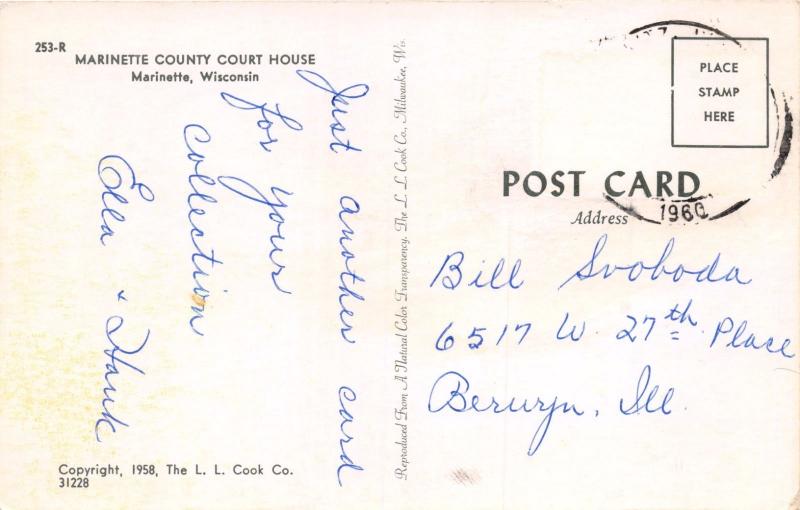 253-R
MARINETTE COUNTY COURT HOUSE
Marinette, Wisconsin
Just another card
for your
collection
Ella & Hank
Copyright, 1958, The L. L. Cook Co.
31228
Reproduced From A Natural Color Transparency. The L. L. Cook Co., Milwaukee, Wis.
PLACE
STAMP
HERE
POST CARD
Address
1960
Bill Svoboda
6517 W. 27th Place
Berwyn, Ill.